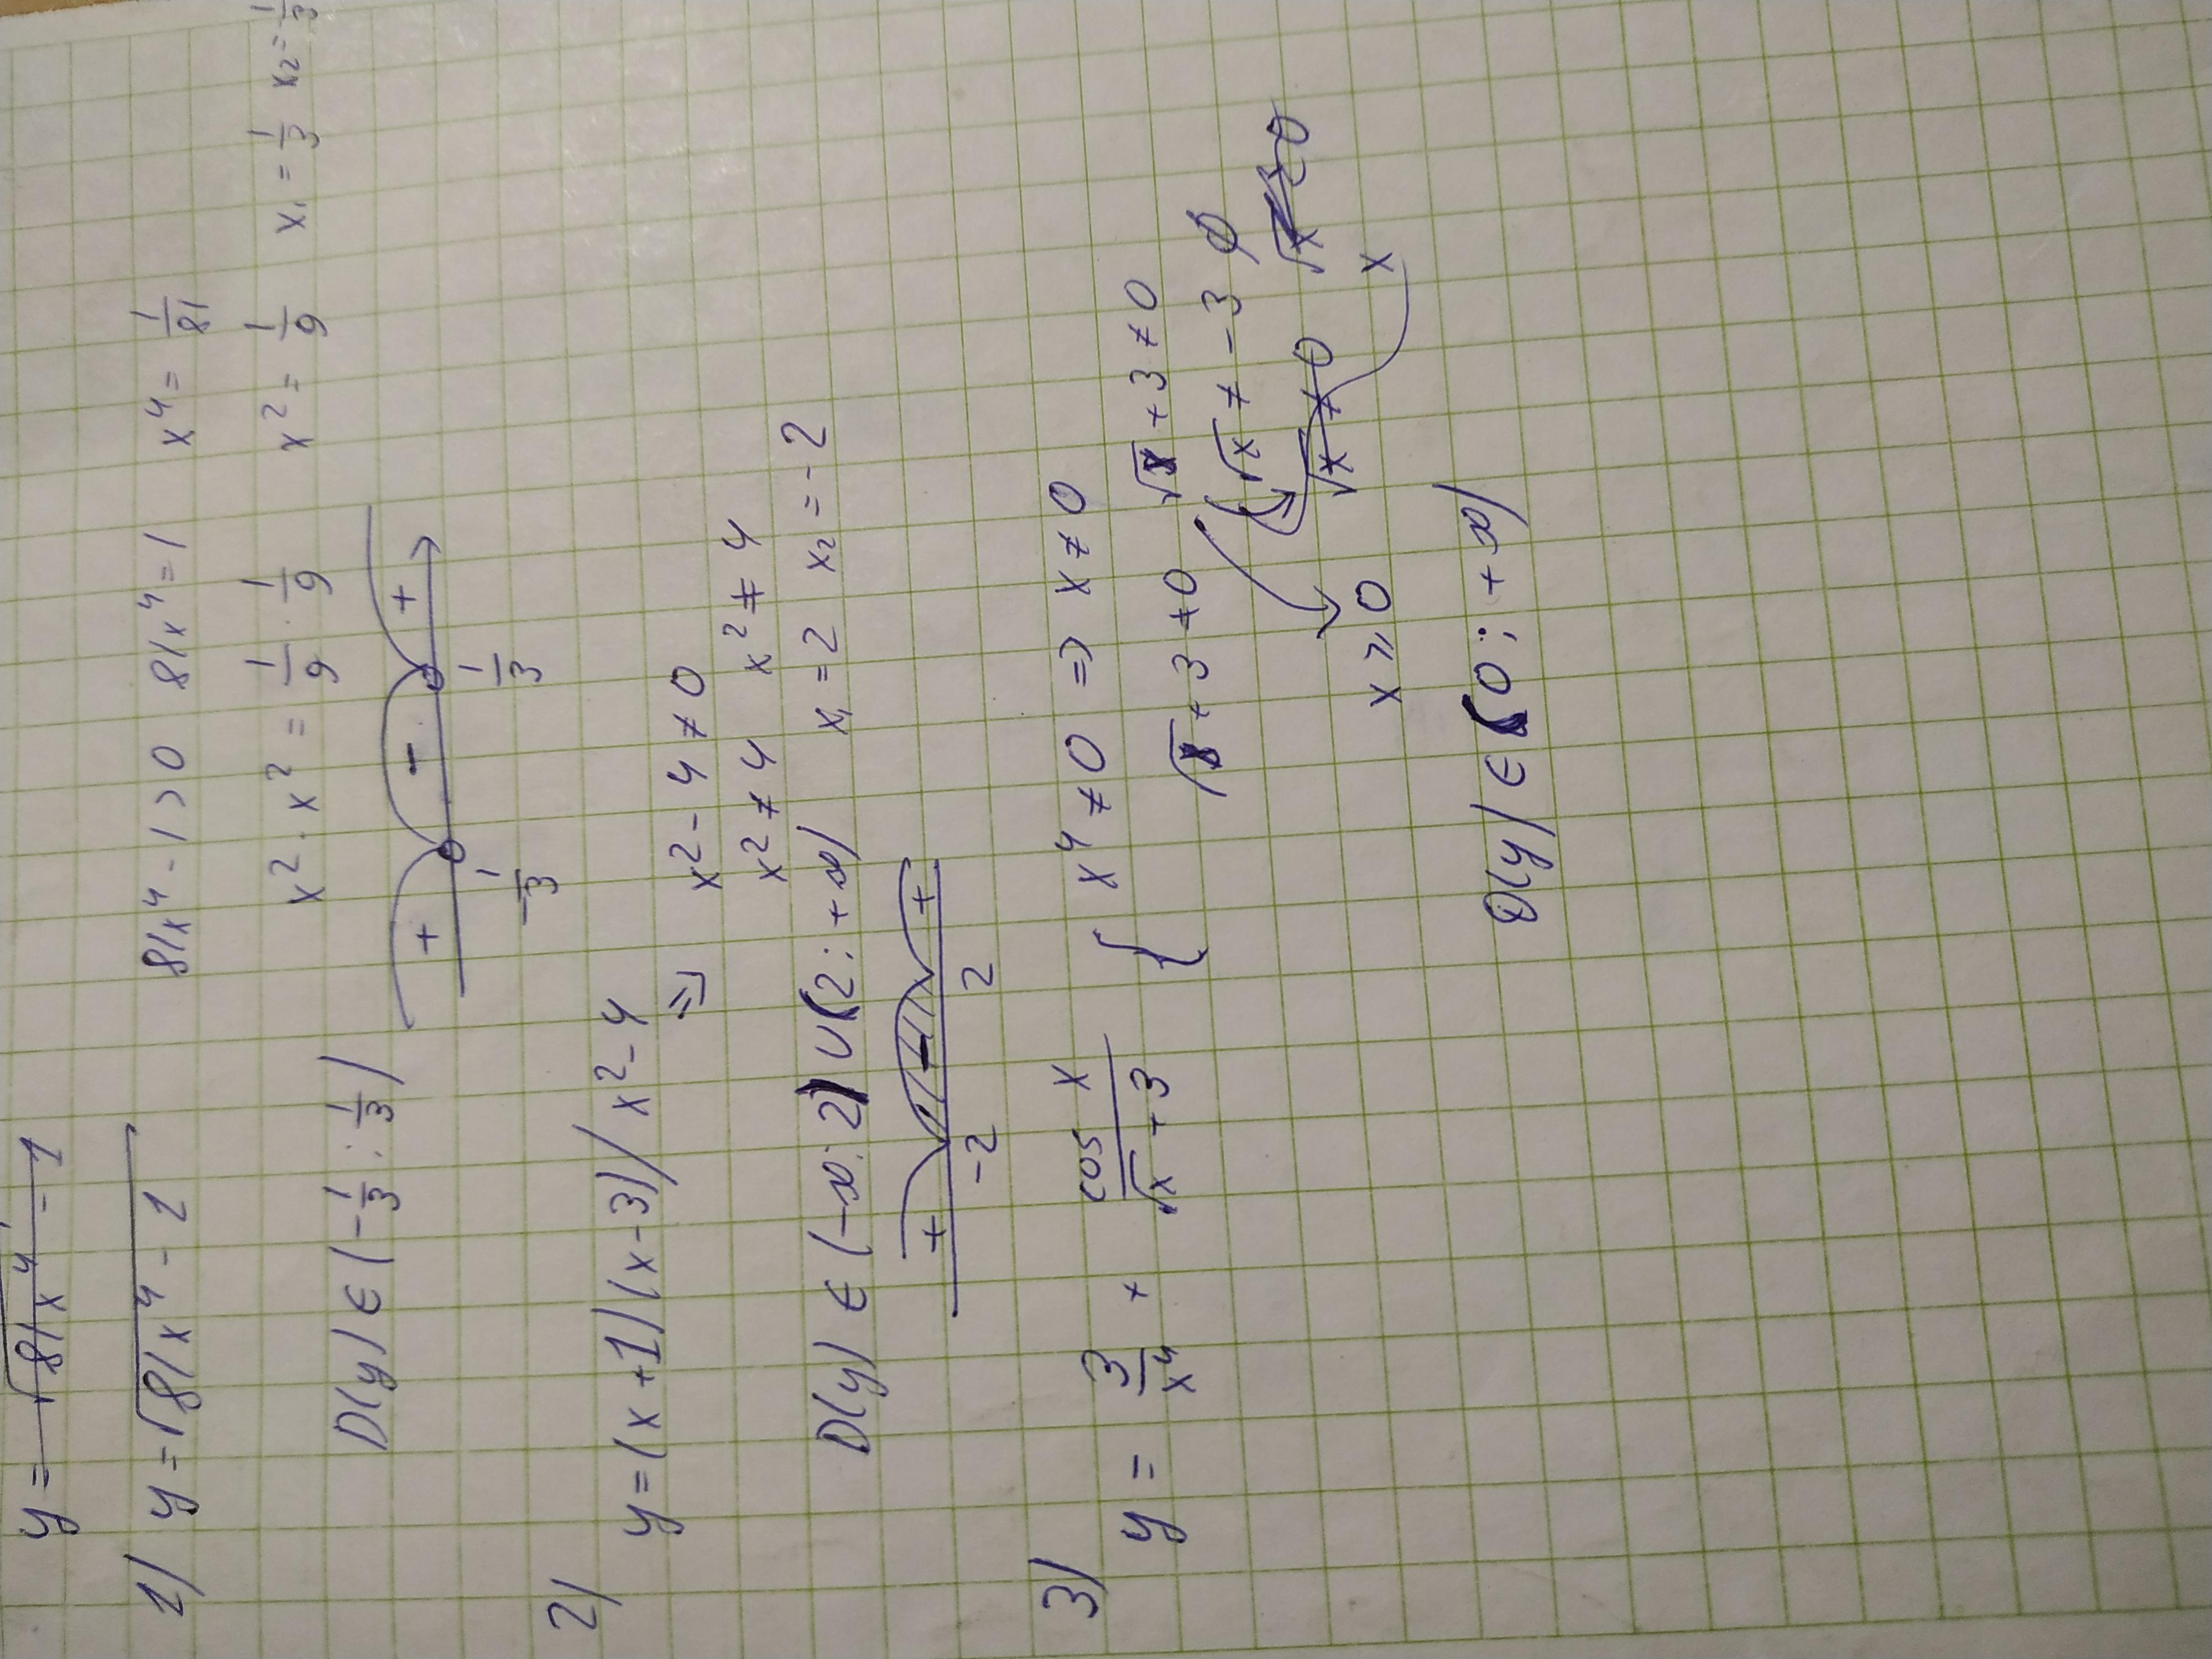 y = √81x⁴ - 1
1) y = √81x⁴ - 1 81x⁴ - 1 > 0 81x⁴ = 1 x⁴ = 1/81
x² · x² = 1/9 · 1/9 x² = 1/9 x₁ = 1/3 x₂ = -1/3
D(y) ∈ (-1/3 ; 1/3) + - +
-1/3 1/3
2)
y = (x+1)(x-3)/x²-4 => x² - 4 ≠ 0
x² ≠ 4 x² ≠ 4
D(y) ∈ (-∞; 2) ∪ (2; +∞) x₁ = 2 x₂ = -2
+ - +
-2 2
3)
y = 3/x⁴ + cos x/√x + 3 { x⁴ ≠ 0 => x ≠ 0
√x + 3 ≠ 0 √x + 3 ≠ 0
√x ≠ -3 ∅
√x ≠ 0 √x ≥ 0
x ≥ 0 x
D(y) ∈ (0; +∞)